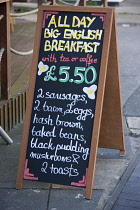 ALL DAY
BIG ENGLISH
BREAKFAST
with tea or coffee
£5.50
2 sausages
2 bacon, 2 eggs
hash brown,
baked beans
black pudding
mushrooms &
2 toasts